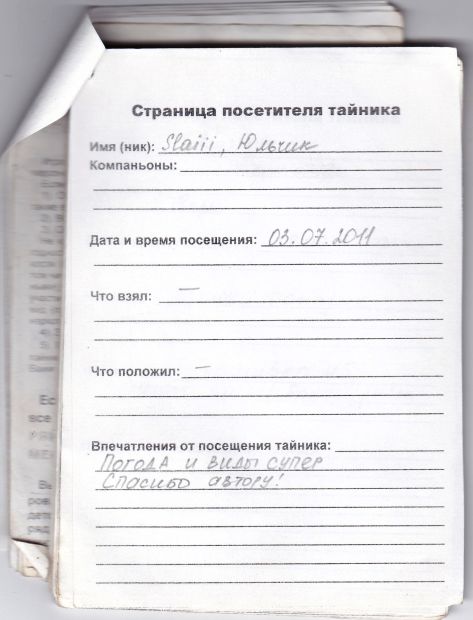 Страница посетителя тайника
Имя (ник): Slaiii, Юльчик
Компаньоны:
Дата и время посещения: 03.07.2011
Что взял: —
Что положил: —
Впечатления от посещения тайника:
Погода и виды супер
Спасибо автору!